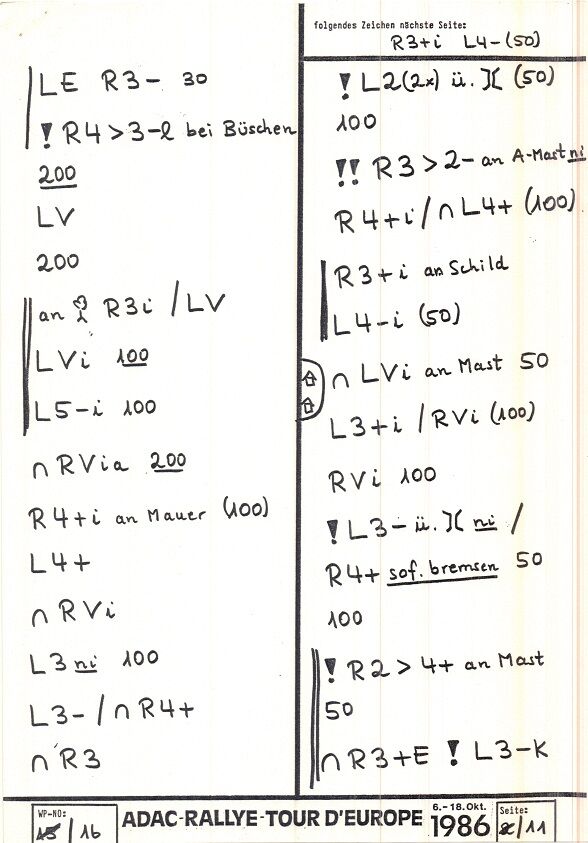 LE R3- 30
! R4>3-l bei Büschen
200
LV
200
an R3i / LV
LVi 100
L5-i 100
∩ RVia 200
R4+i an Mauer (100)
L4+
∩ RVi
L3 ni 100
L3- / ∩ R4+
∩ R3
folgendes Zeichen nächste Seite:
R3+i L4- (50)
! L2(2x) ü. )( (50)
100
!! R3>2- an A-Mast ni
R4+i / ∩ L4+ (100)
R3+i an Schild
L4-i (50)
∩ LVi an Mast 50
L3+i / RVi (100)
RVi 100
! L3- ü. )( ni /
R4+ sof. bremsen 50
100
! R2 > 4+ an Mast
50
∩ R3+E ! L3-K
WP-NO:
15 / 16
ADAC-RALLYE-TOUR D'EUROPE
6.-18. Okt.
1986
Seite:
/ 11